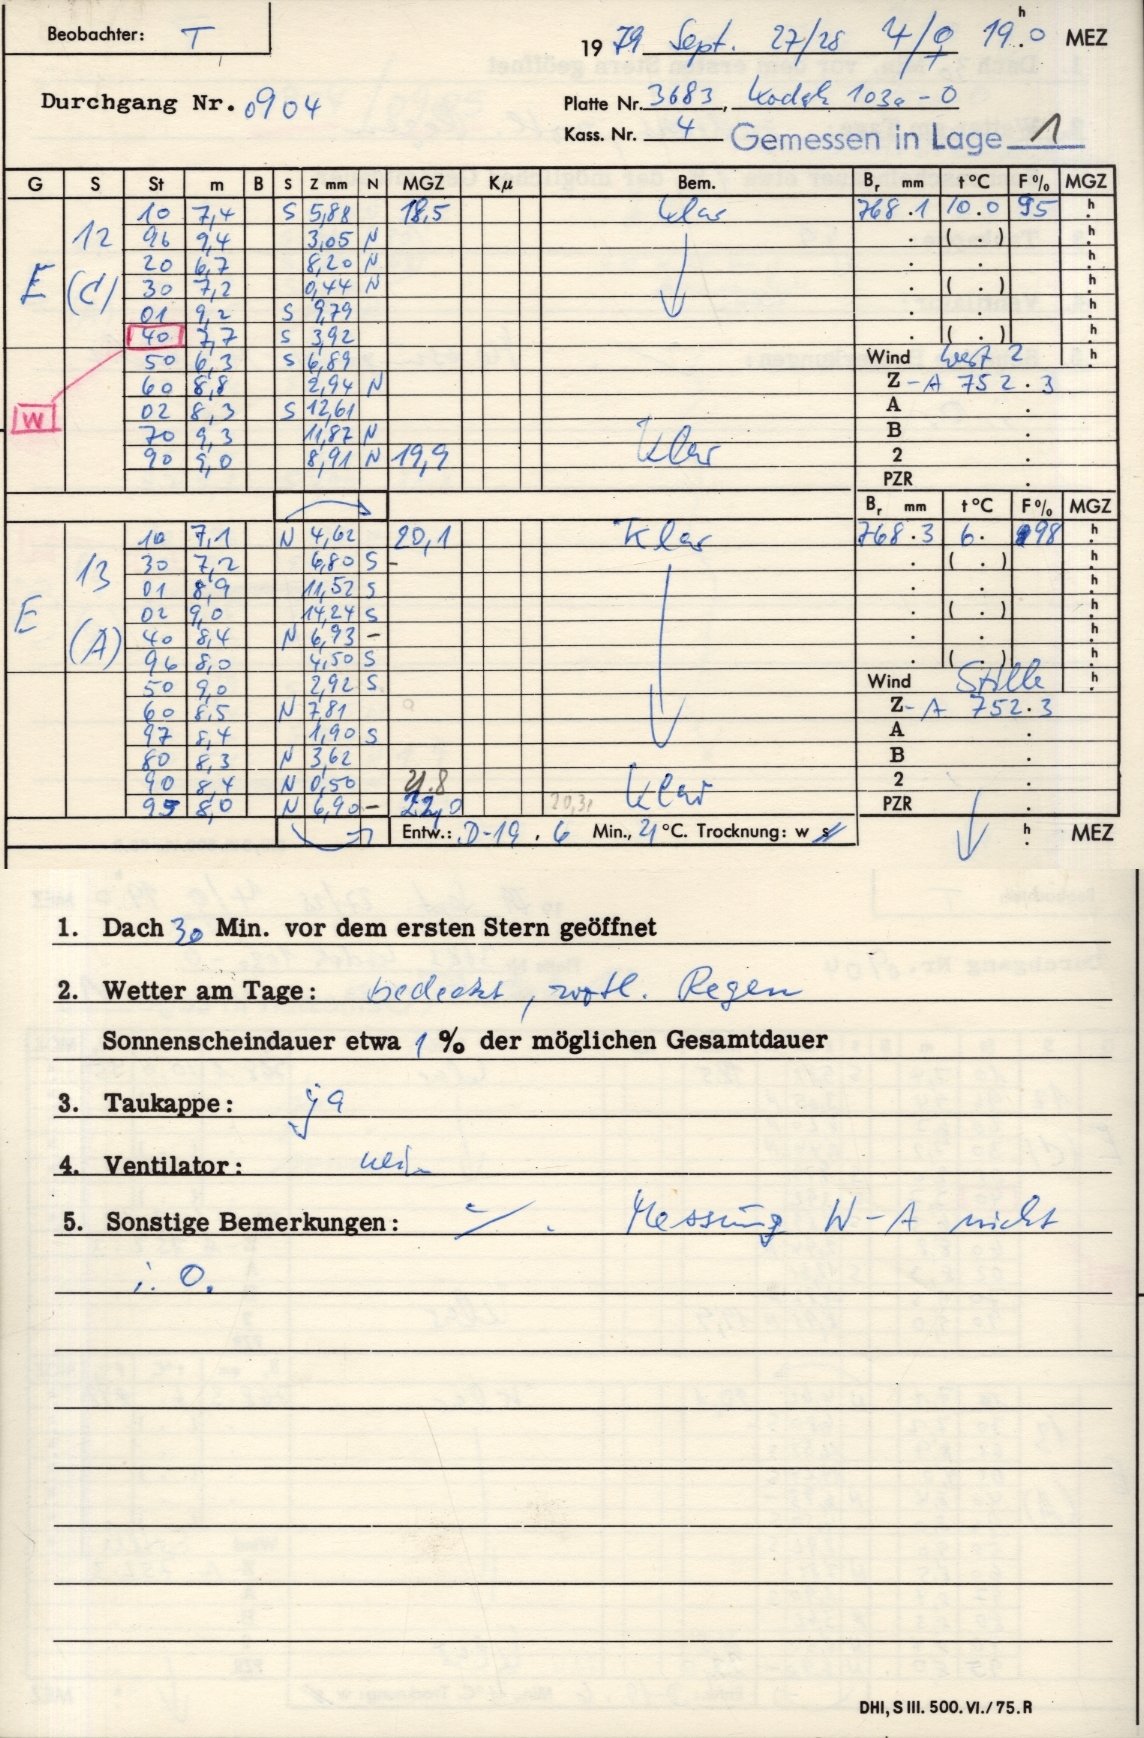 Beobachter: T
1979 Sept. 27/28 4/0 19.0 h MEZ
Durchgang Nr. 0904
Platte Nr. 3683, Kodak 103a-O
Kass. Nr. 4 Gemessen in Lage 1
G S St m B S Z mm N MGZ Kµ Bem. Br mm t °C F% MGZ
10 7,4 S 5,88 18,5 klar 768.1 10.0 95 h
12 96 9,4 3,05 N . ( . ) h
20 6,7 8,20 N . . h
E (C) 30 7,2 0,44 N . ( . ) h
01 9,2 S 9,79 . . h
40 7,7 S 3,92 . ( . ) h
50 6,3 S 6,89 Wind West 2 h
60 8,8 2,94 N Z -A 752.3
W 02 8,3 S 12,61 A .
70 9,3 11,87 N Klar B .
90 9,0 8,91 N 19,9 2 .
PZR .
Br mm t °C F% MGZ
10 7,1 N 4,62 20,1 Klar 768.3 6. 98 h
13 30 7,2 6,80 S - . ( . ) h
01 8,9 11,52 S . . h
E 02 9,0 14,24 S . ( . ) h
(A) 40 8,4 N 6,93 - . . h
96 8,0 4,50 S . ( . ) h
50 9,0 2,92 S Wind Stille h
60 8,5 N 7,81 Z -A 752.3
97 8,4 1,90 S A .
80 8,3 N 3,62 B .
90 8,4 N 0,50 21.8 Klar 2 .
95 8,0 N 6,90 - 22,0 20,31 PZR .
Entw.: D-19, 6 Min., 21 °C. Trocknung: w s h MEZ
1. Dach 30 Min. vor dem ersten Stern geöffnet
2. Wetter am Tage: bedeckt, zeitl. Regen
Sonnenscheindauer etwa 1 % der möglichen Gesamtdauer
3. Taukappe: ja
4. Ventilator: nein
5. Sonstige Bemerkungen: ./. Messung W-A nicht
i. O.
DHI, S III. 500. VI./75. R